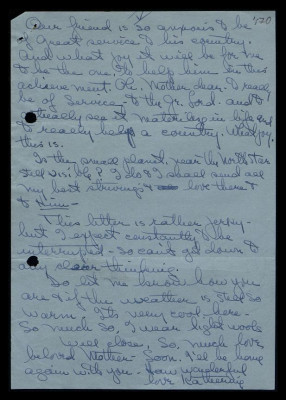 720
Our friend is so anxious to be
of great service to his country.
And what joy it will be for me
to be the one, to help him in this
achievement. Oh. Mother dear. To really
be of service - to the Gr. Lord. and to
actually see it materialize in life and
to really help a country. What joy
this is.
In the small planet, near the North Star
still visible? I do & I shall send all
my best strivings & love there &
to Him -
This letter is rather jerky -
but I expect constantly to be
interrupted - so can't get down to
any clear thinking.
So let me know how you
are & if the weather is still so
warm. Its very cool here -
So much so, I wear light wools
Well close, So much love,
beloved Mother - Soon. I'll be home
again with you - How wonderful
love Katherine